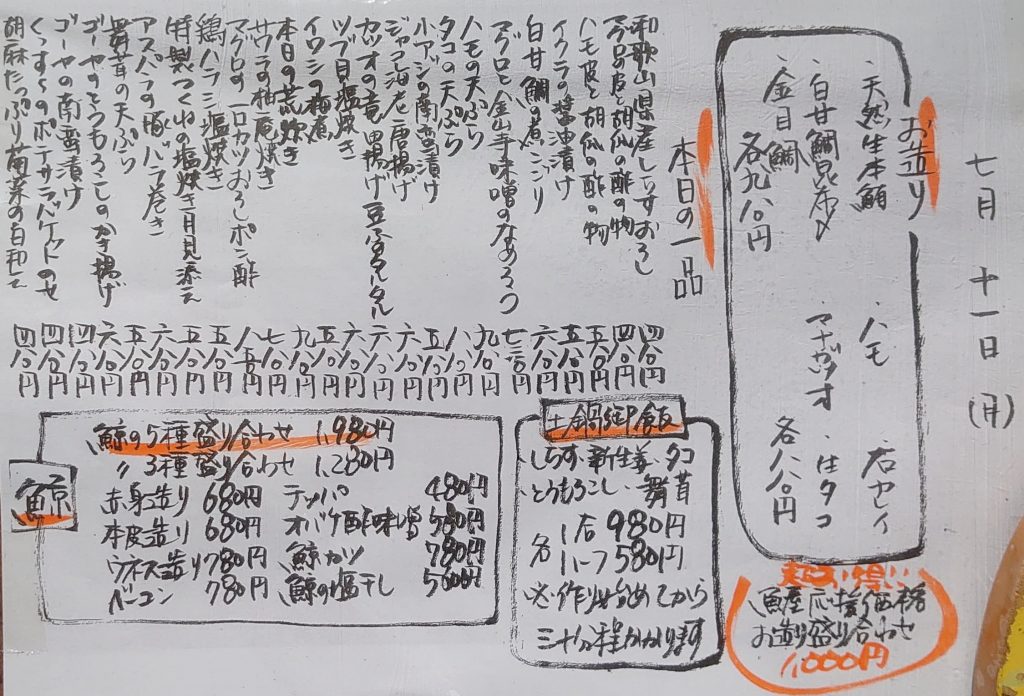 七月十一日(月)
お造り
・天然生本鮪
・白甘鯛昆布〆
・金目鯛
各九八〇円
・ハモ
・マナガツオ
・石ガレイ
・生タコ
各八八〇円
超お買い得!!
魚屋応援価格
お造り盛り合わせ
1,000円
本日の一品
和歌山県産しらすおろし 四八〇円
マグロの皮と胡瓜の酢の物 四八〇円
ハモ皮と胡瓜の酢の物 五八〇円
イクラの醤油漬け 五八〇円
白甘鯛の煮こごり 六八〇円
マグロと金山寺味噌のなめろう 七三〇円
ハモの天ぷら 九八〇円
タコの天ぷら 八八〇円
小アジの南蛮漬け 五八〇円
ジャンボ海老唐揚げ 六八〇円
カツオの竜田揚げ豆富タルタル 六八〇円
ツブ貝塩焼き 六八〇円
イワシの梅煮 五八〇円
本日の荒炊き 九八〇円
サワラの柚庵焼き 七八〇円
マグロの一口カツおろしポン酢 八五〇円
鶏ハラミ塩焼き 五八〇円
特製つくねの塩焼き月見添え 五八〇円
アスパラの豚バラ巻き 六八〇円
舞茸の天ぷら 五八〇円
ゴーヤとうもろこしのかき揚げ 六八〇円
ゴーヤの南蛮漬け 四八〇円
のポテサラバケットのせ 四八〇円
胡麻たっぷり菊菜の白和え 四八〇円
土鍋御飯
しらす・新生姜・タコ
とうもろこし・舞茸
各 1合 980円
ハーフ 580円
※作り始めてから
三十分程かかります
鯨
鯨の5種盛り合わせ 1,980円
〃3種盛り合わせ 1,280円
赤身造り 680円 テッパ 480円
本皮造り 680円 オバケ酢味噌 580円
ウネス造り 780円 鯨カツ 780円
ベーコン 780円 鯨の塩干し 500円